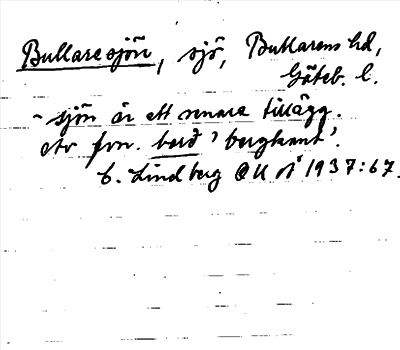 Bullaresjön, sjö, Bullarens hd,
Göteb. l.
- sjön är ett senare tillägg.
etv fvn. barð 'bergkant'.
C. Lindberg OUOÅ 1937:67.